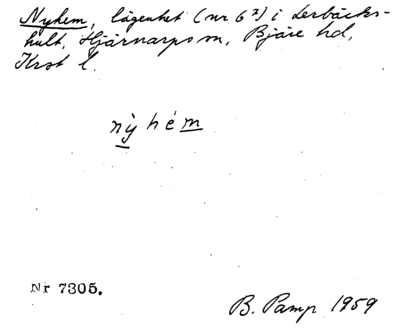 Nyhem, lägenhet (nr 6²) i Lerbäcks-
hult, Hjärnarps sn, Bjäre hd,
Krst l.
nỳhém
Nr 7305.
B. Pamp 1959